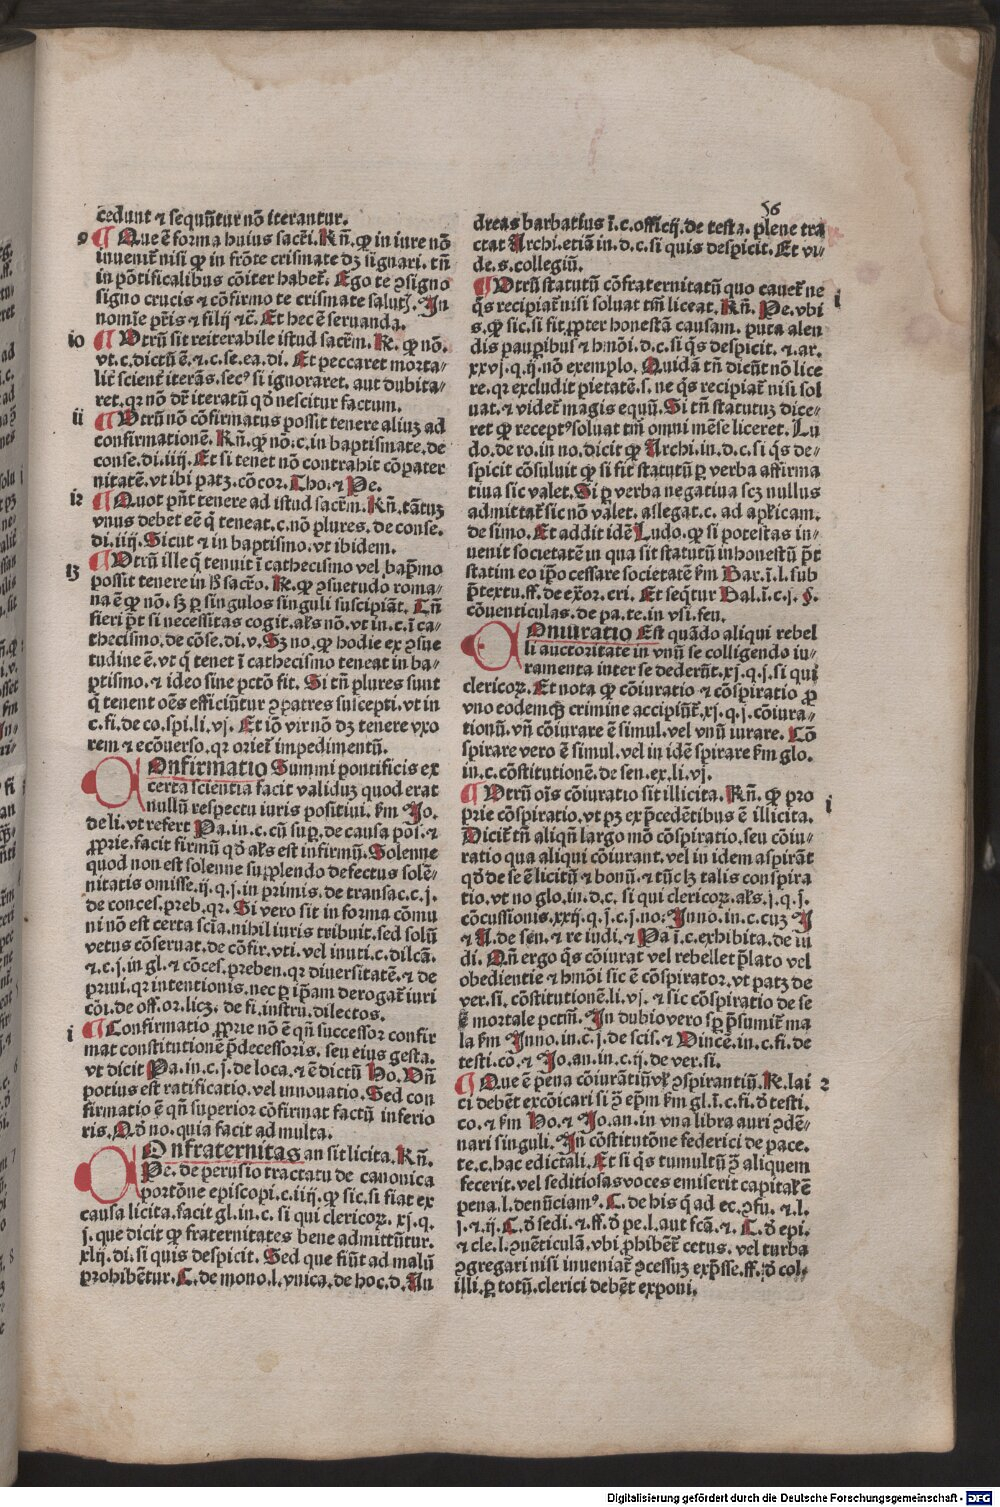 56
cedunt ⁊ sequũtur nõ iterantur.
9 ¶ Que ẽ forma huius sacr̃i. Rñ. ꝙ in iure nõ
inuenit̃ nisi ꝙ in frõte crismate dꝫ signari. tñ
in põtificalibus cõiter habet̃. Ego te ꝯsigno
signo crucis ⁊ cõfirmo te crismate salutꝭ. In
nomĩe pr̃is ⁊ filij ⁊c̃. Et hec ẽ seruanda.
io ¶ Vtrũ sit reiterabile istud sacr̃m. R̃. ꝙ nõ.
vt.c. dictũ ẽ.⁊.c. se. ea. di. Et peccaret morta-
lit̃ scient̃ iterãs. secꝰ si ignoraret. aut dubita-
ret. qr nõ dr̃ iteratũ qd̃ nescitur factum.
ii ¶ Vtrũ nõ cõfirmatus possit tenere aliuꝫ ad
confirmationẽ. Rñ. ꝙ nõ. c. in baptismate. de
conse. di. iiij. Et si tenet nõ contrahit cõpater
nitatẽ. vt ibi patꝫ. cõcor. Tho. ⁊ Pe.
i2 ¶ Quot pñt tenere ad istud sacr̃m. Rñ. tãtuꝫ
vnus debet eẽ q̃ teneat. c. nõ plures. de conse.
di. iiij. Sicut ⁊ in baptismo. vt ibidem.
i3 ¶ Vtrũ ille q̃ tenuit ĩ cathecismo vel bap̃mo
possit tenere in hͦ sacr̃o. R̃. ꝙ ꝯsuetudo roma-
na ẽ ꝙ nõ. sꝫ ꝑ singulos singuli suscipiãt. Tñ
fieri p̃t si necessitas cogit. al̃s nõ. vt in. c. ĩ ca-
thecismo. de cõse. di. v. Sꝫ no. ꝙ hodie ex ꝯsue
tudine ẽ. vt q̃ tenet ĩ cathecismo teneat in ba-
ptismo. ⁊ ideo sine pctõ fit. Si tñ plures sunt
q̃ tenent oẽs efficiũtur ꝯpatres suscepti. vt in
c. fi. de co. spi. li. vj. Et iõ vir nõ dꝫ tenere vxo
rem ⁊ ecõuerso. qr oriet̃ impedimentũ.
COnfirmatio Summi pontificis ex
certa scientia facit validuꝫ quod erat
nullũ respectu iuris positiui. fm Jo.
de li. vt refert Pa. in. c. cũ suꝑ. de causa poi. ⁊
ꝓprie. facit firmũ qd̃ al̃s est infirmũ. Solenne
quod non est solenne supplendo defectus solẽ-
nitatis omisse. ij. q. j. in primis. de transac. c. j.
de conces. preb. qr. Si vero sit in forma cõmu
ni nõ est certa scĩa. nihil iuris tribuit. sed solũ
vetus cõseruat. de cõfir. vti. vel inuti. c. dilcã.
⁊. c. j. in gl. ⁊ cõces. preben. qr diuersitatẽ. ⁊ de
priui. qr intentionis. nec ꝑ ip̃am derogat̃ iuri
cõi. de off. or. licꝫ. de fi. instru. dilectos.
i ¶ Confirmatio ꝓprie nõ ẽ qñ successor confir
mat constitutionẽ p̃decessoris. seu eius gesta.
vt dicit Pa. in. c. j. de loca. ⁊ ẽ dictũ Ho. Vñ
potius est ratificatio. vel innouatio. Sed con
firmatio ẽ qñ superior cõfirmat factũ inferio
ris. Qd̃ no. quia facit ad multa.
COnfraternitas an sit licita. Rñ.
Pe. de perusio tractatu de canonica
portõne episcopi. c. iiij. ꝙ sic. si fiat ex
causa licita. facit gl. in. c. si qui clericoꝝ. xj. q.
j. que dicit ꝙ fraternitates bene admittũtur.
xlij. di. si quis despicit. Sed que fiũt ad malũ
prohibẽtur. C. de mono. l. vnica. de hoc. d. An
dreas barbatius ĩ. c. officij. de testa. plene tra
ctat Archi. etiã in. d. c. si quis despicit. Et vi-
de. s. collegiũ.
¶ Vtrũ statutũ cõfraternitatũ quo cauet̃ ne i
q̃s recipiat̃ nisi soluat tm̃ liceat. Rñ. Pe. vbi
s. ꝙ sic. si fit ꝓpter honestã causam. puta alen
dis pauperibus ⁊ hmõi. d. c. si q̃s despicit. ⁊ ar.
xxvj. q. ij. nõ exemplo. Quidã tñ dicũt nõ lice
re. qr excludit pietatẽ. s. ne q̃s recipiat̃ nisi sol
uat. ⁊ videt̃ magis equũ. Si tñ statutuꝫ dice-
ret ꝙ receptꝰ soluat tm̃ omni mẽse liceret. Lu
do. de ro. in no. dicit ꝙ Archi. in. d. c. si q̃s de-
spicit cõsuluit ꝙ si fit statutũ ꝑ verba affirma
tiua sic valet. Si ꝑ verba negatiua scꝫ nullus
admittat̃ sic nõ valet. allegat. c. ad apl̃icam.
de simo. Et addit idẽ Ludo. ꝙ si potestas in-
uenit societatẽ in qua sit statutũ inhonestũ p̃t
statim eo ip̃o cessare societatẽ fm Bar. ĩ. l. sub
p̃textu. ff. de exor. cri. Et seq̃tur Bal. ĩ. c. j. §.
cõuenticulas. de pa. te. in vsi. feu.
COniuratio Est quãdo aliqui rebel
li auctoritate in vnũ se colligendo iu-
ramenta inter se dederũt. xj. q. j. si qui
clericoꝝ. Et nota ꝙ cõiuratio ⁊ cõspiratio ꝓ
vno eodemqꝫ crimine accipiũt̃. xj. q. j. cõiura-
tionũ. vñ cõiurare ẽ simul. vel vnũ iurare. Cõ
spirare vero ẽ simul. vel in idẽ spirare fm glo.
in. c. cõstitutionẽ. de sen. ex. li. vj.
¶ Vtrũ oĩs cõiuratio sit illicita. Rñ. ꝙ pro i
prie cõspiratio. vt pꝫ ex p̃cedẽtibus ẽ illicita.
Dicit̃ tñ aliqñ largo mõ cõspiratio. seu cõiu-
ratio qua aliqui cõiurant. vel in idem aspirãt
qd̃ de se ẽ licitũ ⁊ bonũ. ⁊ tũc lꝫ talis conspira
tio. vt no glo. in. d. c. si qui clericoꝝ. al̃s. j. q. j.
cõcussionis. xxij. q. j. c. j. no. Inno. in. c. cuꝫ I
⁊ A. de sen. ⁊ re iudi. ⁊ Pa ĩ. c. exhibita. de iu
di. Qñ ergo q̃s cõiurat vel rebellet p̃lato vel
obedientie ⁊ hmõi sic ẽ cõspirator. vt patꝫ de
ver. si. cõstitutionẽ. li. vj. ⁊ sic cõspiratio de se
ẽ mortale pctm̃. In dubio vero sꝑ p̃sumit̃ ma
la fm Inno. in. c. j. de scis. ⁊ Vincẽ. in. c. fi. de
testi. cõ. ⁊ Jo. an. in. c. ij. de ver. si.
¶ Que ẽ pena cõiurãtiũ vl̃ ꝯspirantiũ. R̃. lai 2
ci debẽt excõicari si ꝯ̃ ep̃m fm gl. ĩ. c. fi. ð testi.
co. ⁊ fm Ho. ⁊ Jo. an. in vna libra auri ꝯdẽ-
nari singuli. In cõstitutõne federici de pace.
te. c. hac edictali. Et si q̃s tumultũ ꝯ̃ aliquem
fecerit. vel seditiosas voces emiserit capitał ẽ
pena. l. denũciamꝰ. C. de his q̃ ad ec. ꝯfu. ⁊. l.
j. ⁊ ij. C. ð sedi. ⁊. ff. ð pe. l. aut fcã. ⁊. C. ð epi.
⁊ cle. l. ꝯuẽticulã. vbi ꝓhibet̃ cetus. vel turba
ꝯgregari nisi inueniat̃ ꝯcessuꝫ exp̃sse. ff. ð col-
illi. ꝑ totũ. clerici debẽt exponi.
Digitalisierung gefördert durch die Deutsche Forschungsgemeinschaft - DFG